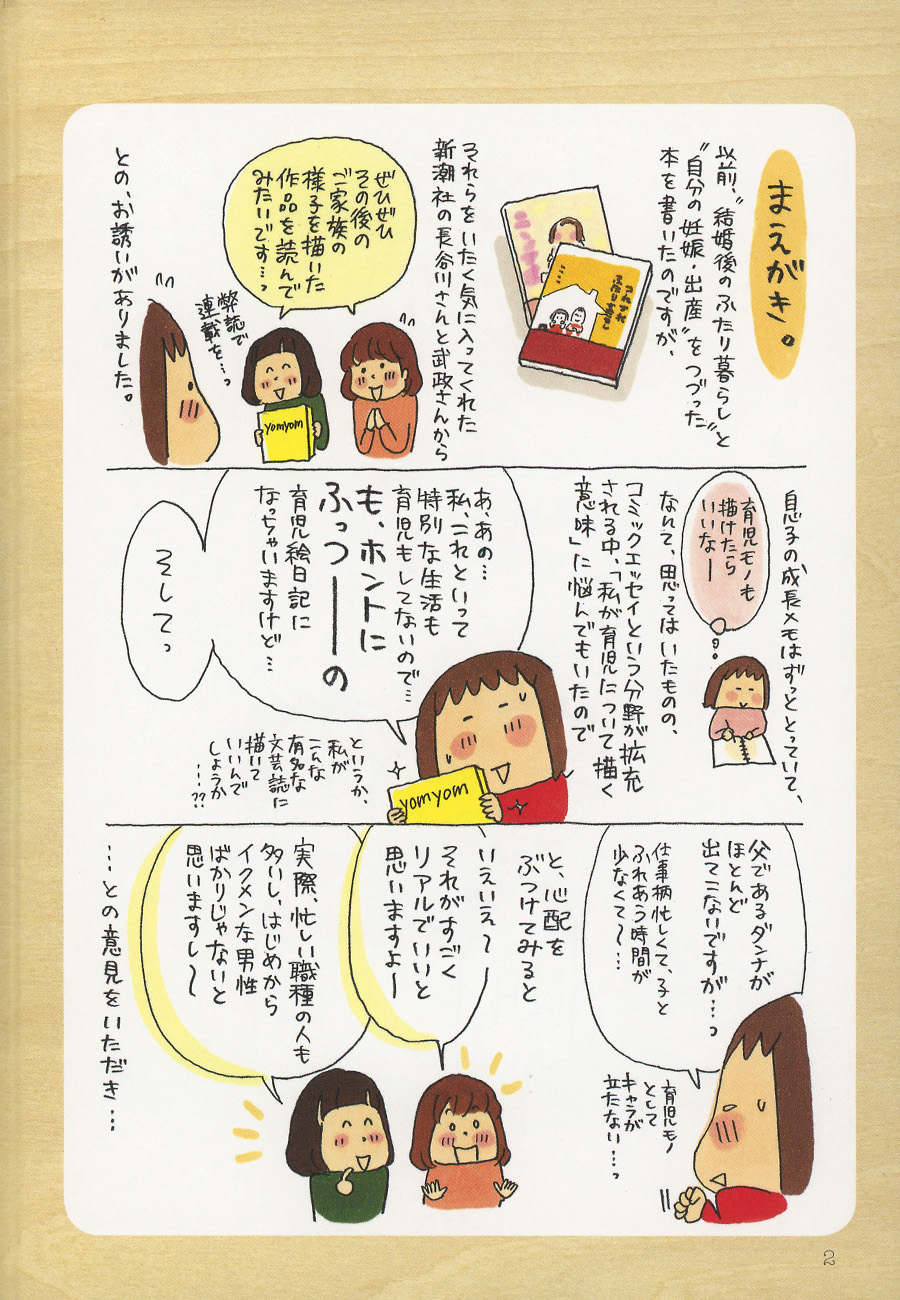 まえがき。
以前、"結婚後のふたり暮らし"と
"自分の妊娠・出産"をつづった
本を書いたのですが、
それらをいたく気に入ってくれた
新潮社の長谷川さんと武政さんから
ぜひぜひ
その後の
ご家族の
様子を描いた
作品を読んで
みたいです…っ
弊誌で
連載を…っ
yomyom
との、お誘いがありました。
自息子の成長メモはずっととっていて、
育児モノも
描けたら
いいなー
なんて、思ってはいたものの、
コミックエッセイという分野が拡充
される中、「私が育児について描く
意味」に悩んでもいたので
あ、あの…
私、これといって
特別な生活も
育児もしてないので…
も、ホントに
ふっつーーの
育児絵日記に
なっちゃいますけど…
そしてっ
yomyom
というか、
私が
こんな
有名な
文芸誌に
描いて
いいんで
しょうか
…??
父であるダンナが
ほとんど
出てこないですが…っ
仕事柄忙しくて、子と
ふれあう時間が
少なくて〜…
育児モノ
として
キャラが
立たない…っ
と、心配を
ぶつけてみると
いえいえ〜
それがすごく
リアルでいいと
思いますよー
実際、忙しい職種の人も
多いし、はじめから
イクメンな男性
ばかりじゃないと
思いますし〜
…との意見をいただき…
2